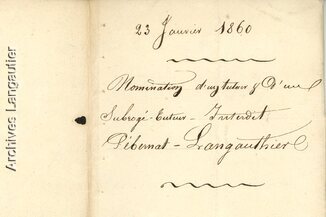 Archives Langautier
23 Janvier 1860
Nomination d'un tuteur & d'un
Subrogé-tuteur - Interdit
Pébernat - Langauthier